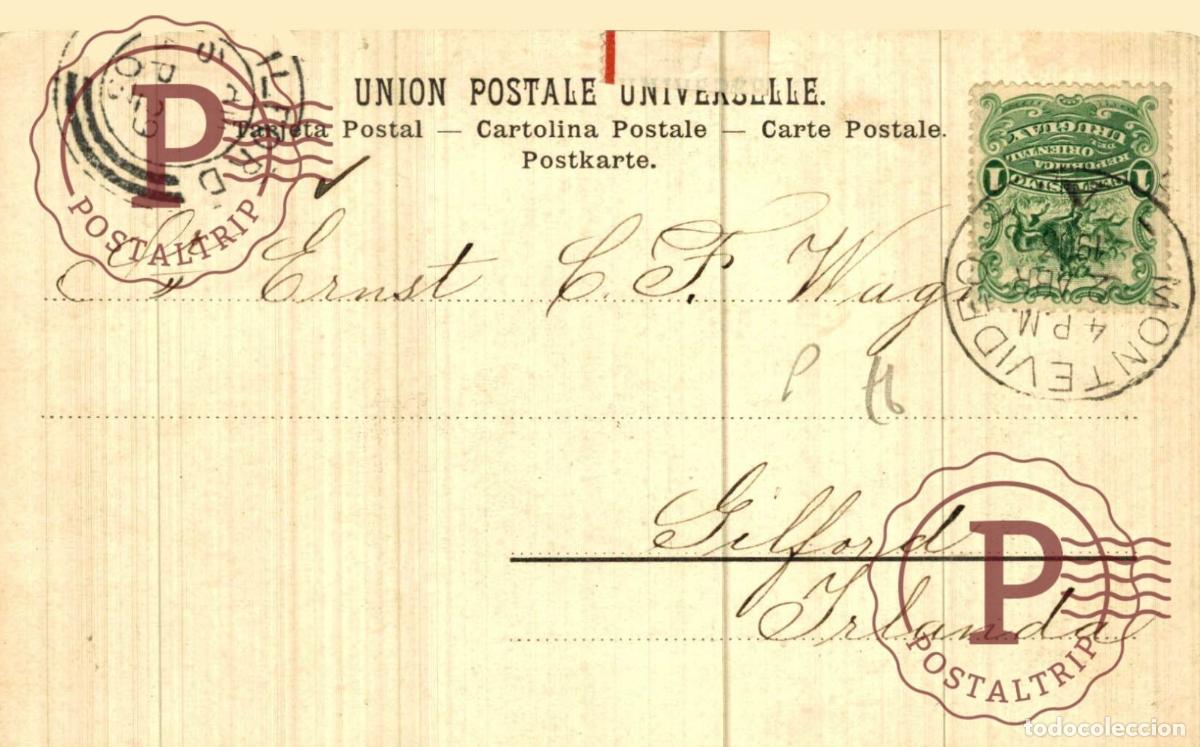 UNION POSTALE UNIVERSELLE.
Tarjeta Postal — Cartolina Postale — Carte Postale.
Postkarte.
URUGUAY
REPUBLICA ORIENTAL DEL
1 CENTESIMO 1
MONTEVIDEO
4 P.M.
Sr Ernst C. F. Wag
Gilford
Irlanda
P
POSTALTRIP
P
POSTALTRIP
todocoleccion